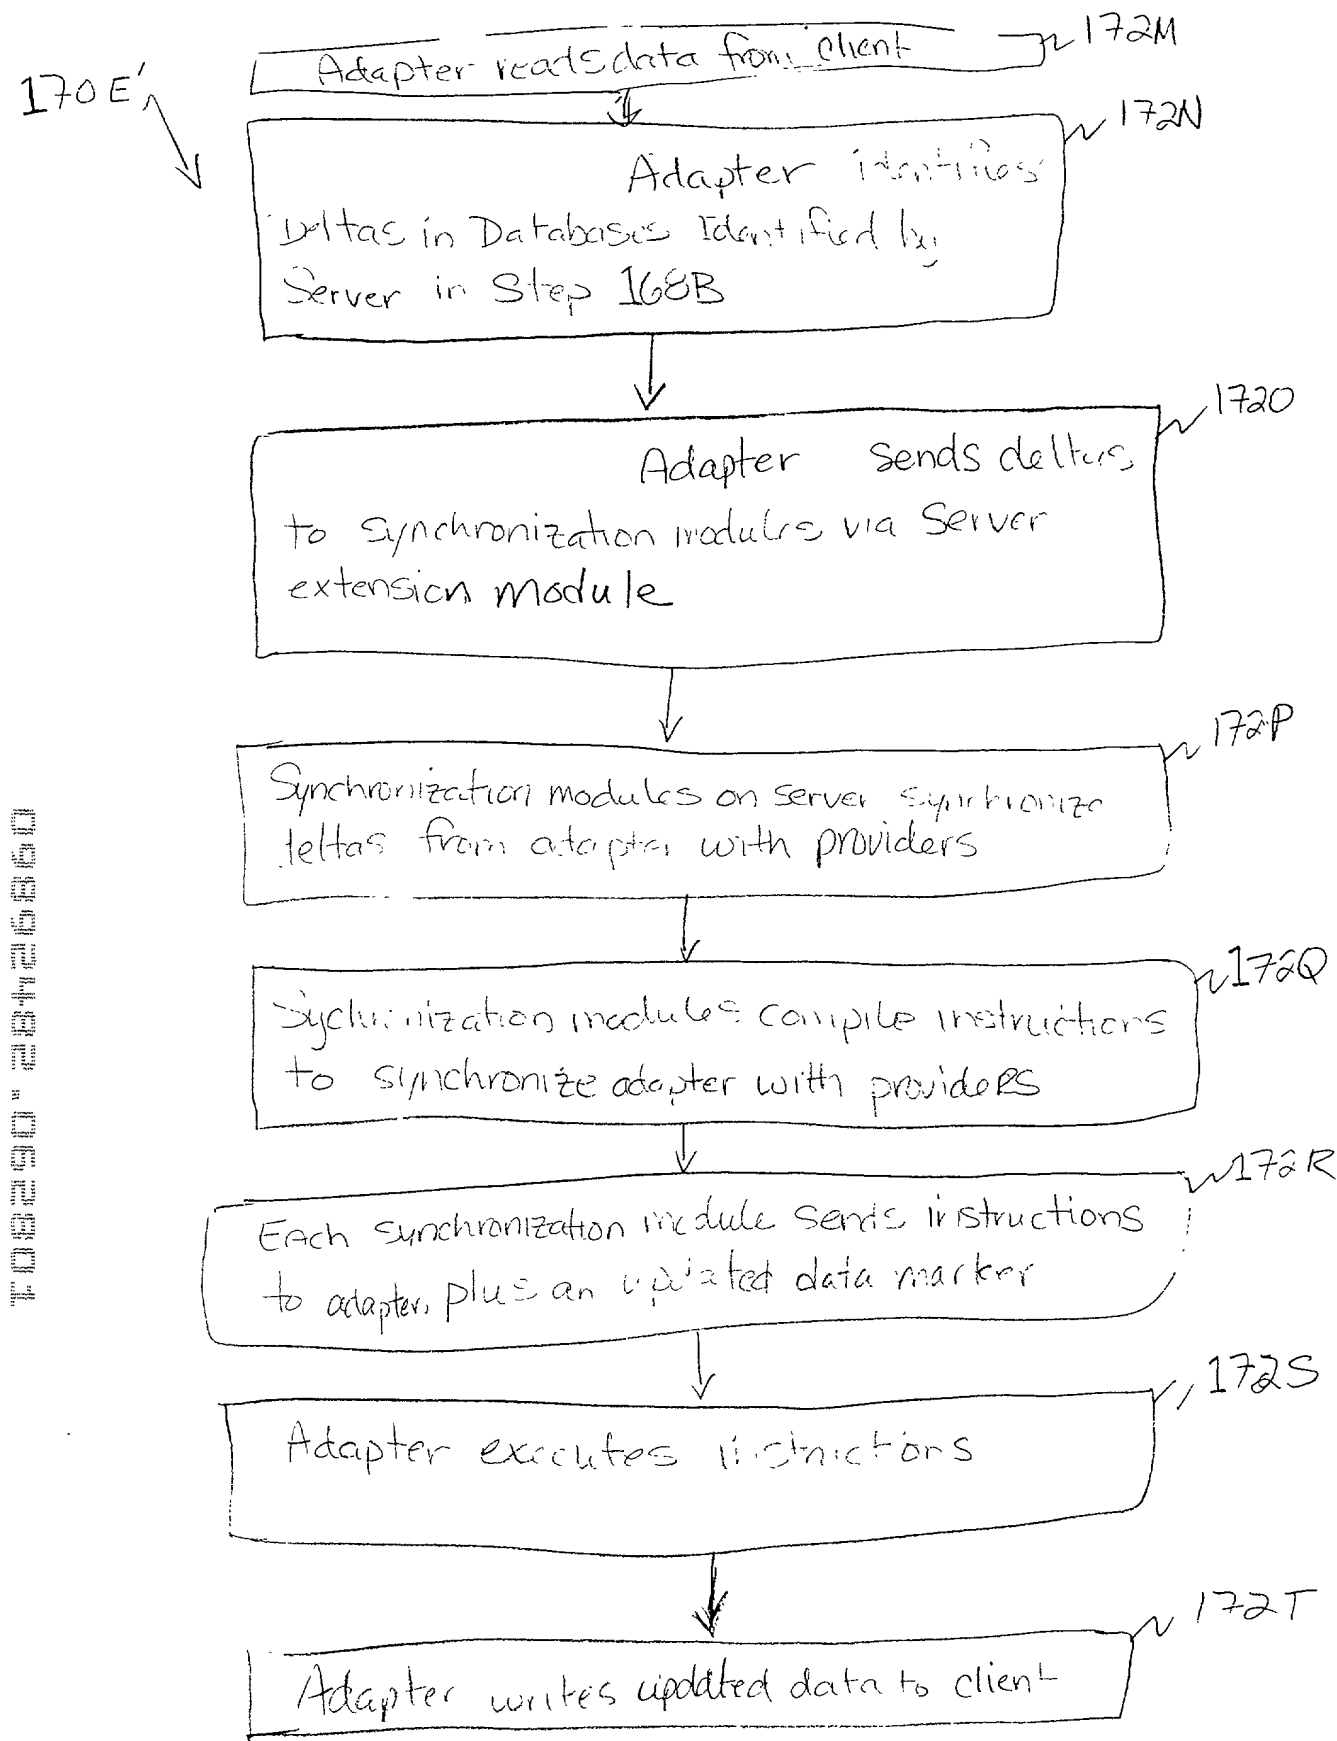 172M
Adapter reads data from client
170E'
172N
Adapter identifies
Deltas in Databases Identified by
Server in Step 168B
172O
Adapter sends deltas
to synchronization modules via Server
extension module
172P
Synchronization modules on server synchronize
deltas from adapter with providers
172Q
Sychronization modules compile instructions
to synchronize adapter with providers
172R
Each synchronization module sends instructions
to adapter, plus an updated data marker
172S
Adapter executes instructions
172T
Adapter writes updated data to client
09892482.062801